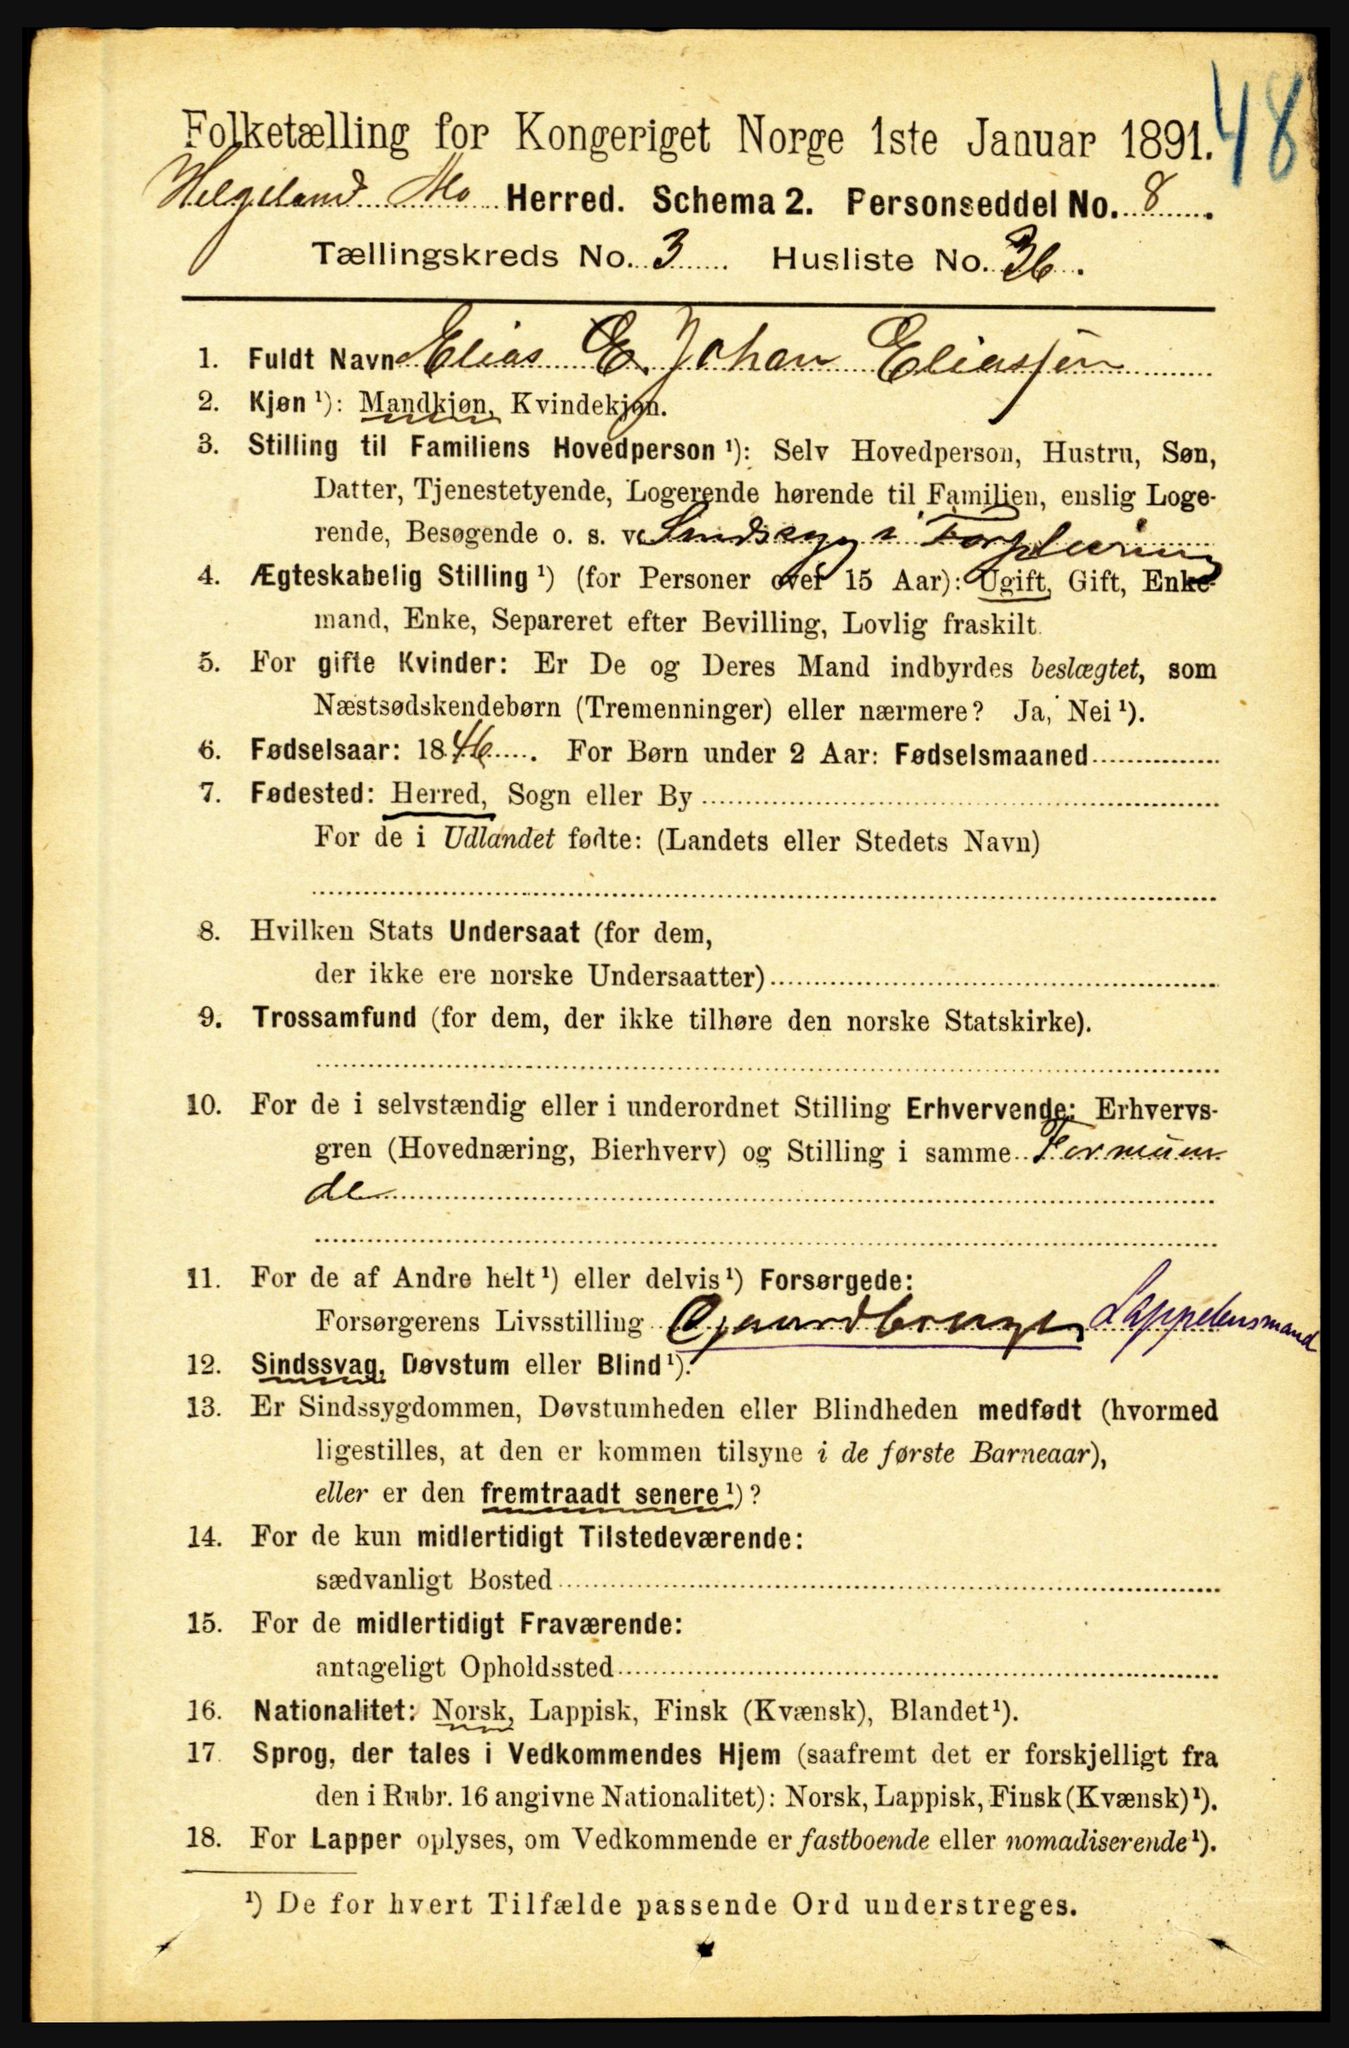 48
Folketælling for Kongeriget Norge 1ste Januar 1891.
Helgeland Mo Herred. Schema 2. Personseddel No. 8.
Tællingskreds No. 3 Husliste No. 36.
1. Fuldt Navn Elias E. Johan Eliassen
2. Kjøn ¹): Mandkjøn, Kvindekjøn.
3. Stilling til Familiens Hovedperson ¹): Selv Hovedperson, Hustru, Søn,
Datter, Tjenestetyende, Logerende hørende til Familien, enslig Loge-
rende, Besøgende o. s. v. Sindssyg i Forpleining
4. Ægteskabelig Stilling ¹) (for Personer over 15 Aar): Ugift, Gift, Enke-
mand, Enke, Separeret efter Bevilling, Lovlig fraskilt.
5. For gifte Kvinder: Er De og Deres Mand indbyrdes beslægtet, som
Næstsødskendebørn (Tremenninger) eller nærmere? Ja, Nei ¹).
6. Fødselsaar: 1846. For Børn under 2 Aar: Fødselsmaaned
7. Fødested: Herred, Sogn eller By
For de i Udlandet fødte: (Landets eller Stedets Navn)
8. Hvilken Stats Undersaat (for dem,
der ikke ere norske Undersaatter)
9. Trossamfund (for dem, der ikke tilhøre den norske Statskirke).
10. For de i selvstændig eller i underordnet Stilling Erhvervende: Erhvervs-
gren (Hovednæring, Bierhverv) og Stilling i samme
de
11. For de af Andre helt ¹) eller delvis ¹) Forsørgede:
Forsørgerens Livsstilling Gaardbruger Lappelensmand
12. Sindssvag, Døvstum eller Blind ¹).
13. Er Sindssygdommen, Døvstumheden eller Blindheden medfødt (hvormed
ligestilles, at den er kommen tilsyne i de første Barneaar),
eller er den fremtraadt senere ¹)?
14. For de kun midlertidigt Tilstedeværende:
sædvanligt Bosted
15. For de midlertidigt Fraværende:
antageligt Opholdssted
16. Nationalitet: Norsk, Lappisk, Finsk (Kvænsk), Blandet ¹).
17. Sprog, der tales i Vedkommendes Hjem (saafremt det er forskjelligt fra
den i Rubr. 16 angivne Nationalitet): Norsk, Lappisk, Finsk (Kvænsk) ¹).
18. For Lapper oplyses, om Vedkommende er fastboende eller nomadiserende ¹).
¹) De for hvert Tilfælde passende Ord understreges.